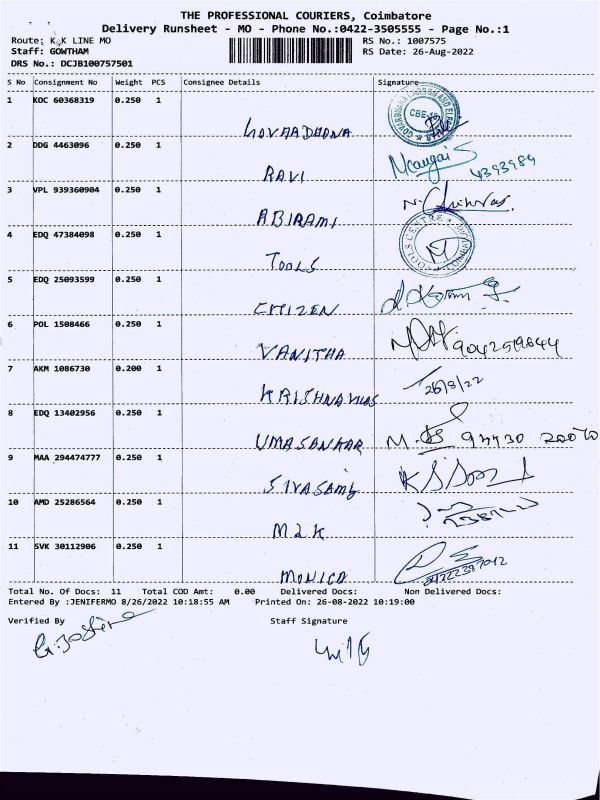 THE PROFESSIONAL COURIERS, Coimbatore
Delivery Runsheet - MO - Phone No.:0422-3505555 - Page No.:1
Route: K.K LINE MO RS No.: 1007575
Staff: GOWTHAM RS Date: 26-Aug-2022
DRS No.: DCJB100757501
S No Consignment No Weight PCS Consignee Details Signature
1 KOC 60368319 0.250 1
CBE-
2 DDG 4463096 0.250 1
RAVI 4393984
3 VPL 939360904 0.250 1
ABIRAMI
4 EDQ 47384098 0.250 1
TOOLS
5 EDQ 25093599 0.250 1
CITIZEN
6 POL 1508466 0.250 1
VANITHA
7 AKM 1086730 0.200 1
26/8/22
KRISHNAVILAS
8 EDQ 13402956 0.250 1
UMASANKAR
9 MAA 294474777 0.250 1
SIVASAMY
10 AMD 25286564 0.250 1
M2K
11 SVK 30112906 0.250 1
MONICA
Total No. Of Docs: 11 Total COD Amt: 0.00 Delivered Docs: Non Delivered Docs:
Entered By :JENIFERMO 8/26/2022 10:18:55 AM Printed On: 26-08-2022 10:19:00
Verified By Staff Signature